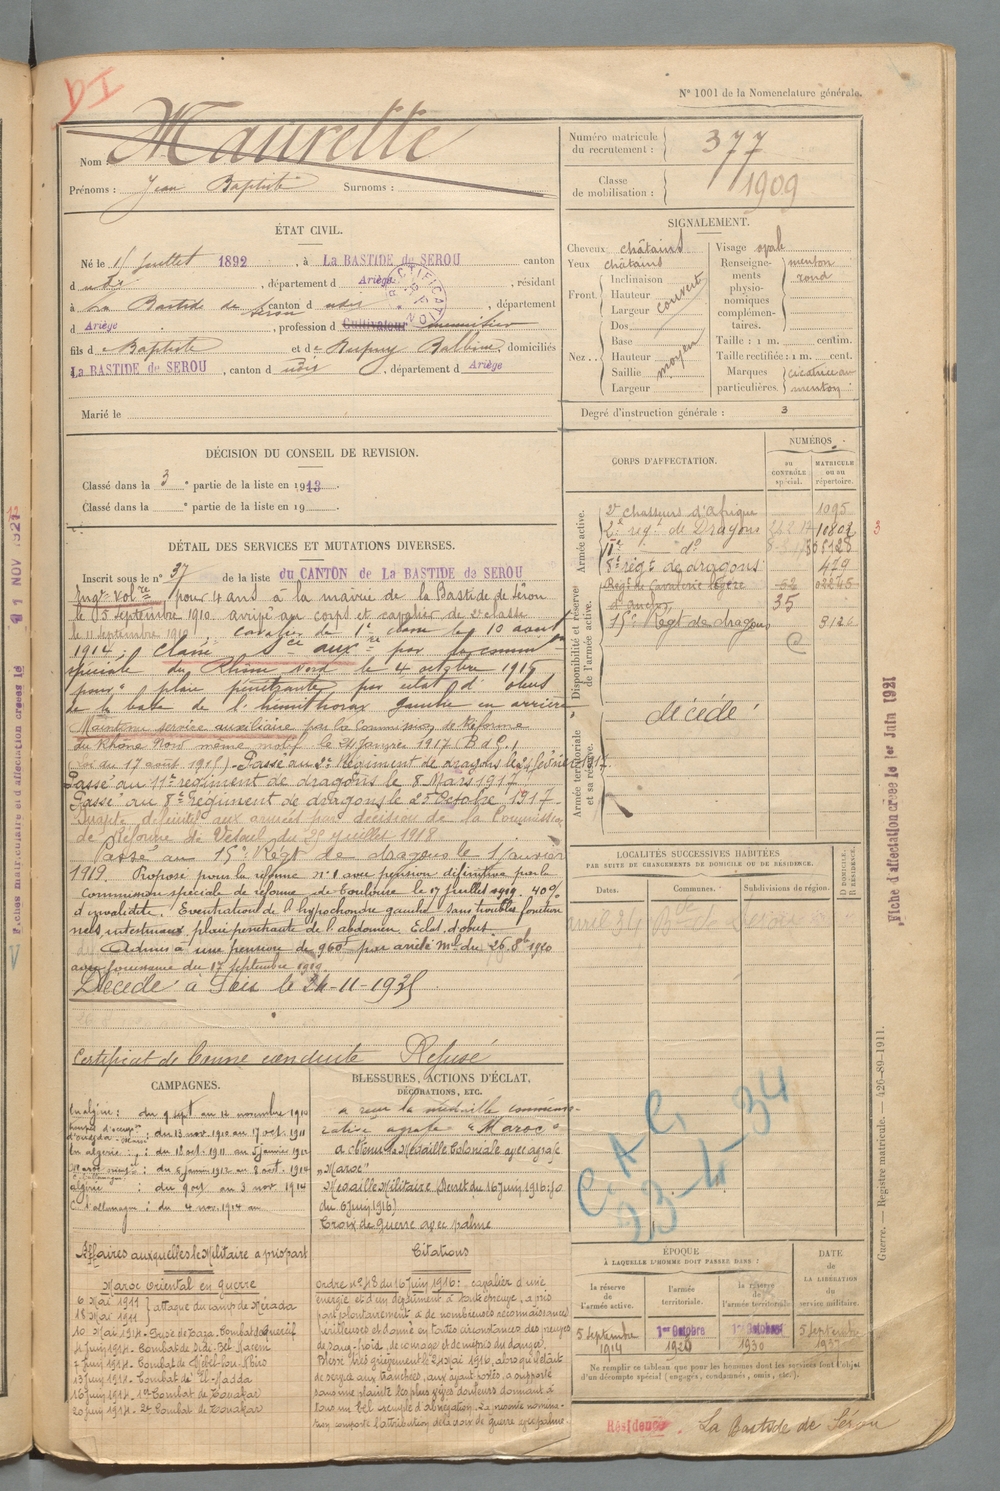 N° 1001 de la Nomenclature générale.
Nom : Maurette
Prénoms : Jean Baptiste Surnoms :
Numéro matricule du recrutement : 377
Classe de mobilisation : 1909
ÉTAT CIVIL.
Né le 15 Juillet 1892, à La BASTIDE de SEROU, canton
d udit, département d Ariège, résidant
à La Bastide de Serou, canton d udit, département
d Ariège, profession d Cultivateur
fils d e Baptiste et de Balbine, domiciliés
La BASTIDE de SEROU, canton d udit, département d Ariège
Marié le
SIGNALEMENT.
Cheveux châtains
Yeux châtains
Front. Inclinaison
Hauteur couvert
Largeur
Nez.. Dos
Base
Hauteur moyen
Saillie
Largeur
Visage oval
Renseignements physionomiques complémentaires. menton rond
Taille : 1 m. centim.
Taille rectifiée : 1 m. cent.
Marques particulières. cicatrice au menton
Degré d'instruction générale : 3
DÉCISION DU CONSEIL DE REVISION.
Classé dans la 3e partie de la liste en 1913.
Classé dans la e partie de la liste en 19
DÉTAIL DES SERVICES ET MUTATIONS DIVERSES.
Inscrit sous le n° 37 de la liste du CANTON de La BASTIDE de SEROU
Engt volre pour 4 ans à la mairie de la Bastide de Sérou
le 5 septembre 1910 arrivé au corps et cavalier de 2e classe
le 11 septembre 1910. Cavalier de 1re classe le 10 août
1914. Classé sce auxre par la common
spéciale du Rhône Nord le 4 octobre 1916
pour plaie pénétrante par éclat d'obus
de la base de l'hémithorax gauche en arrière
Maintenu service auxiliaire par la Commission de Réforme
du Rhône Nord même motif le 24 Janvier 1917 (B d G.)
(Loi du 17 août 1915) - Passé au 2e Régiment de dragons le 24 février 1917.
Passé au 11e régiment de dragons le 8 Mars 1917
Passé au 8e Régiment de dragons le 25 Octobre 1917
Inapte définitif aux armées par décision de la Commission
de Réforme de Vesoul du 29 juillet 1918
Passé au 15e Régt de dragons le 1 Janvier
1919. Proposé pour la réforme n° 1 avec pension définitive par la
Commission spéciale de réforme de Toulouse le 17 juillet 1919. 40%
d'invalidité. Eventration de l'hypochondre gauche sans troubles fonction
nels intestinaux, plaie pénétrante de l'abdomen. Eclat d'obus.
Admis à une pension de 960f par arrêté Mel du 26 8bre 1920
avec jouissance du 17 septembre 1919
Décédé à le 24-11-1935
Certificat de bonne conduite Refusé
CORPS D'AFFECTATION.
NUMÉROS
au CONTRÔLE spécial.
MATRICULE ou au répertoire.
Armée active.
2e chasseurs d'Afrique 1095
2e régt de Dragons
11e do
8e régt de dragons 479
Disponibilité et réserve de l'armée active.
Régt de Cavalerie légère
35
15e Régt de dragons 3126
Armée territoriale et sa réserve.
décédé
LOCALITÉS SUCCESSIVES HABITÉES
PAR SUITE DE CHANGEMENTS DE DOMICILE OU DE RÉSIDENCE.
Dates. Communes. Subdivisions de région. D DOMICILE. R RÉSIDENCE.
CAMPAGNES.
En algérie : du 9 sept au 12 novembre 1910
du 13 nov. 1910 au 17 oct. 1911
En algérie : du 18 oct. 1911 au 5 janvier 1912
du 6 janvier 1912 au 8 oct. 1914
algérie : du 9 oct au 3 nov 1914
C. l'allemagne : du 4 nov. 1914 au
BLESSURES, ACTIONS D'ÉCLAT,
DÉCORATIONS, ETC.
a reçu la médaille commémo-
rative agrafe "Maroc"
a obtenu la Médaille Coloniale avec agrafe
"Maroc"
Médaille Militaire (Décret du 16 juin 1916
du 6 juin 1916)
Croix de guerre avec palme
Affaires auxquelles le Militaire a pris part
Maroc Oriental en guerre
6 Mai 1911
18 Mai 1911 attaque du camp de Mérada
10 Mai 1914 - Prise de Taza
4 juin 1914 - Combat de Sidi Bel Kacem
7 juin 1914 - Combat de
13 juin 1914 - Combat d'
16 juin 1914 - 1er Combat de Touahar
20 juin 1914 - 2e Combat de Touahar
Citations
Ordre n° 48 du 16 Juin 1916 : cavalier d'une
énergie et d'un dévouement à toute épreuve, a pris
part volontairement à de nombreuses reconnaissances
périlleuses et donné en toutes circonstances des preuves
de sang-froid, de courage et de mépris du danger.
Blessé très grièvement le 24 mai 1916, alors qu'il était
de service aux tranchées, a supporté
sans une plainte les plus vives douleurs donnant à
tous un bel exemple d'abnégation. La présente nomina-
tion comporte l'attribution de la croix de guerre avec palme.
C. A. C.
23-4-34
ÉPOQUE
À LAQUELLE L'HOMME DOIT PASSER DANS :
la réserve de l'armée active. l'armée territoriale. la réserve de l'armée territoriale.
DATE de la LIBÉRATION du service militaire.
5 Septembre 1914
1er Octobre 1920
1er Octobre 1930
5 Septembre
Ne remplir ce tableau que pour les hommes dont les services font l'objet
d'un décompte spécial (engagés, condamnés, omis, etc.).
Résidence. La Bastide de Sérou
Fiche d'affectation créée le 1er Juin 1921
Guerre. — Registre matricule. — 426-89-1911.